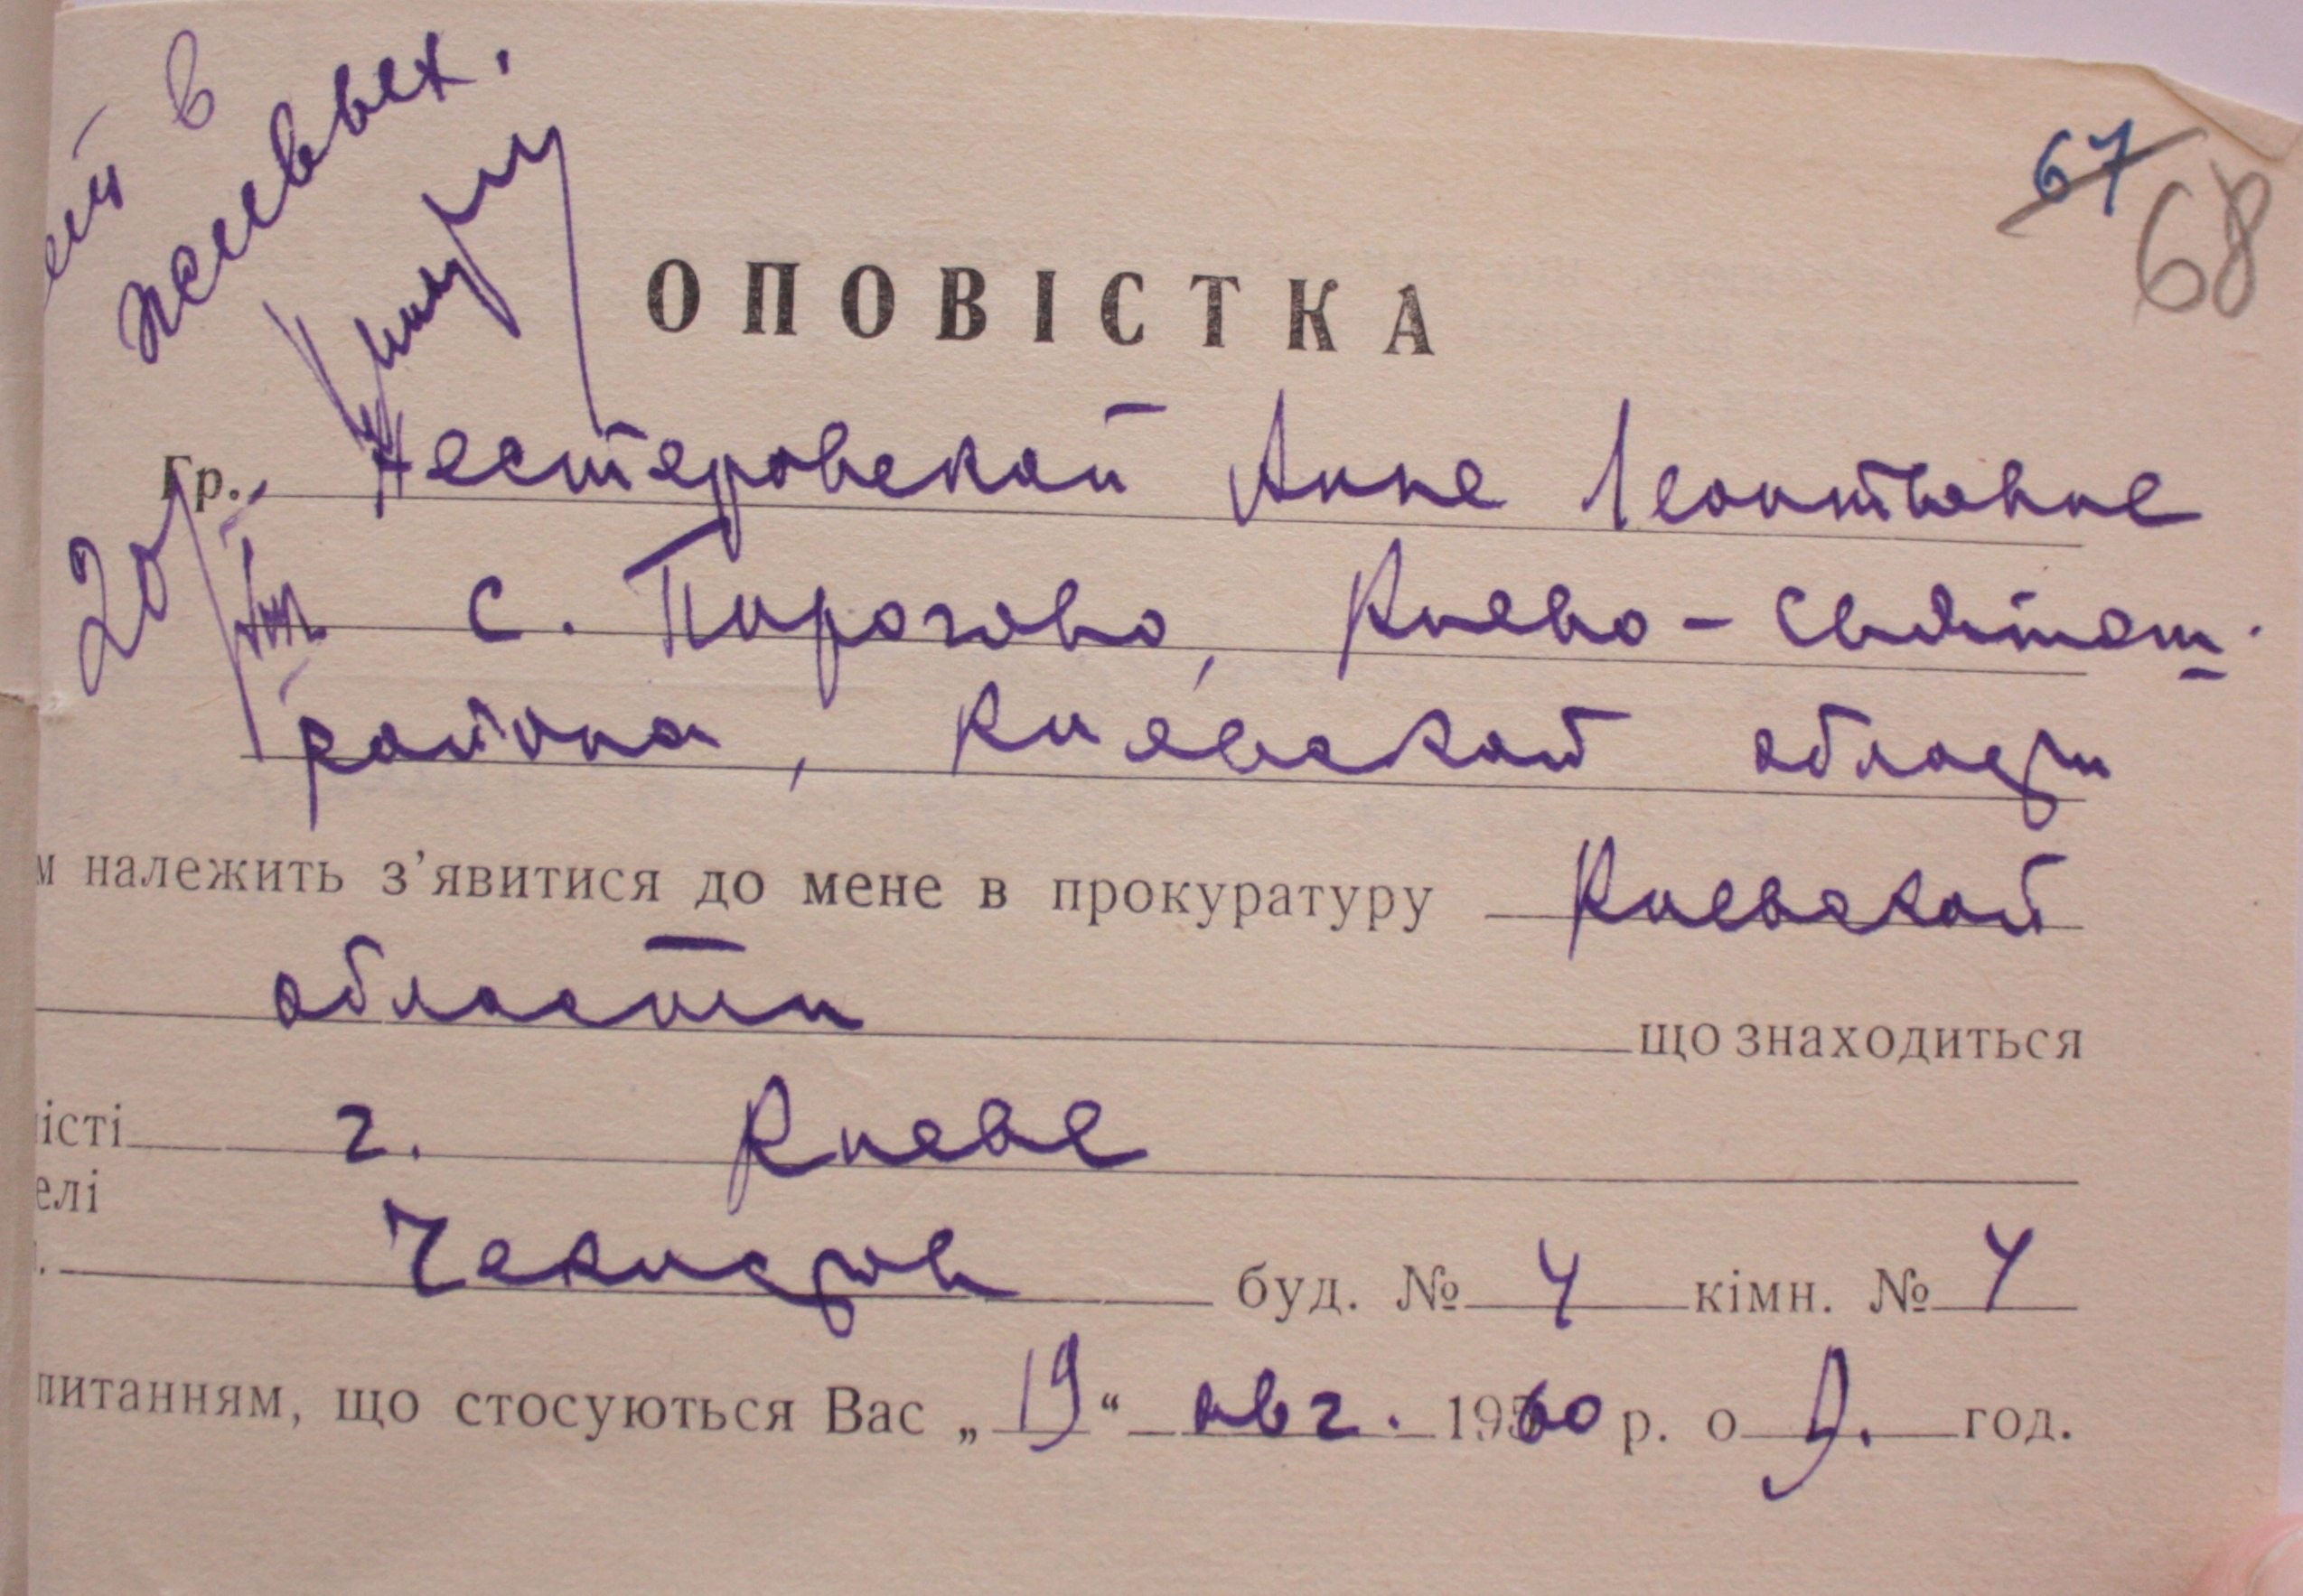 в
67 68
ОПОВІСТКА
Гр. Нестеровской Анне Леонтьевне
20/
с. Пирогово, Киево-Святош.
района, Киевской области
м належить з'явитися до мене в прокуратуру Киевской
области що знаходиться
істі г. Киеве
елі
Чекистов буд. № 4 кімн. № 4
питанням, що стосуються Вас „19“ авг. 1960 р. о 9. год.